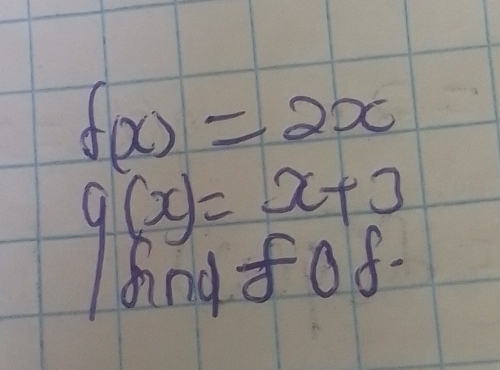 f(x) = 2x
g(x) = x+3
find f o f.